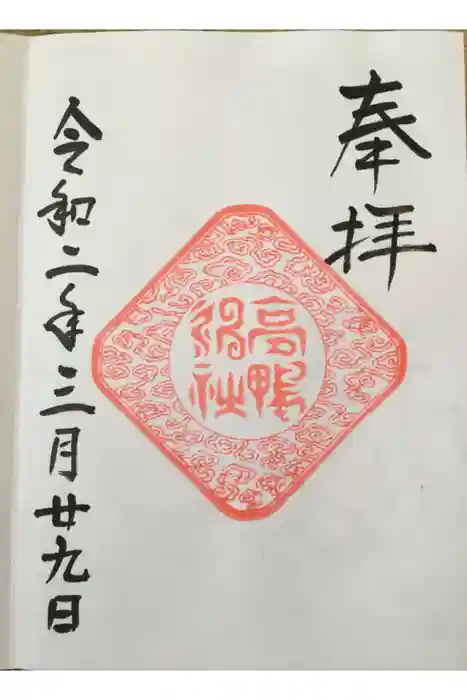 奉拝
高鴨
社
令和二年三月廿九日